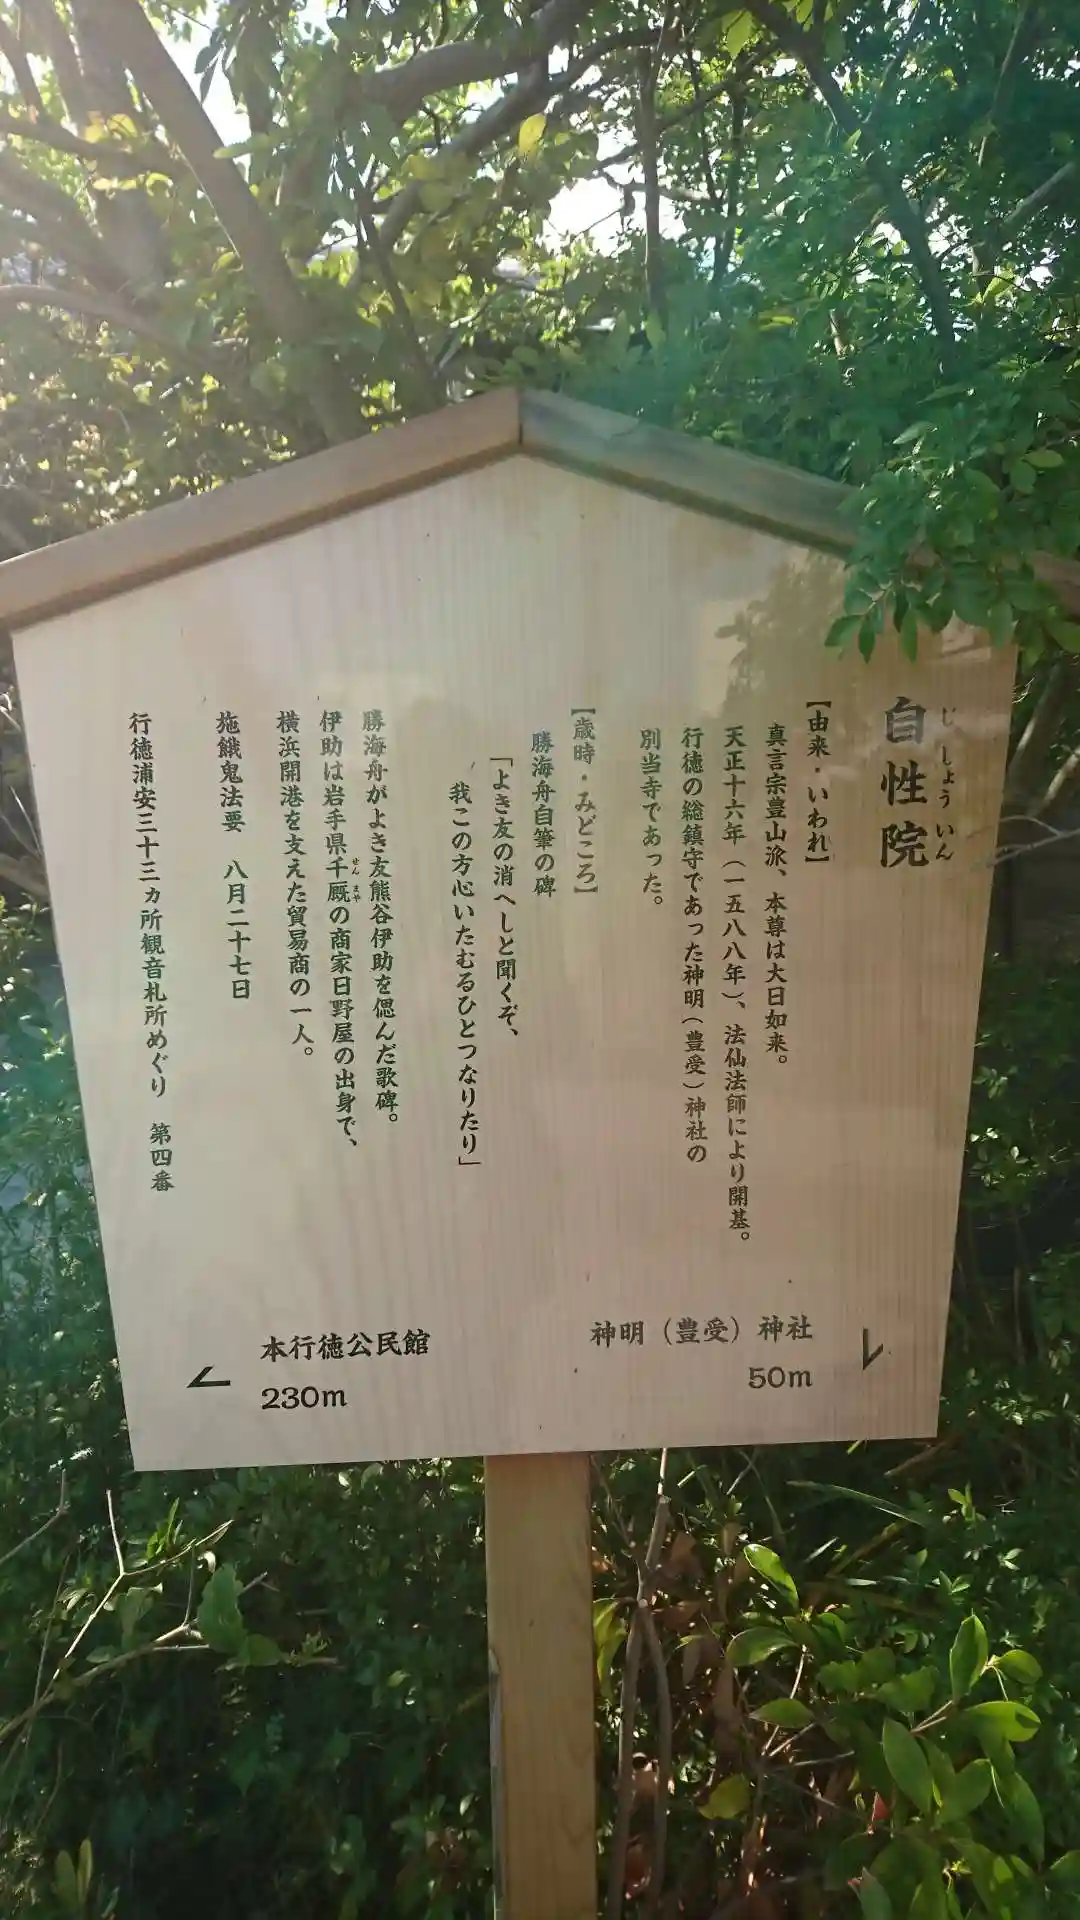 自性院
じしょういん
【由来・いわれ】
真言宗豊山派、本尊は大日如来。
天正十六年（一五八八年）、法仙法師により開基。
行徳の総鎮守であった神明（豊受）神社の
別当寺であった。
【歳時・みどころ】
勝海舟自筆の碑
「よき友の消へしと聞くぞ、
我この方心いたむるひとつなりたり」
勝海舟がよき友熊谷伊助を偲んだ歌碑。
伊助は岩手県千厩の商家日野屋の出身で、
せんまや
横浜開港を支えた貿易商の一人。
施餓鬼法要　八月二十七日
行徳浦安三十三ヵ所観音札所めぐり　第四番
神明（豊受）神社
50m
本行徳公民館
230m